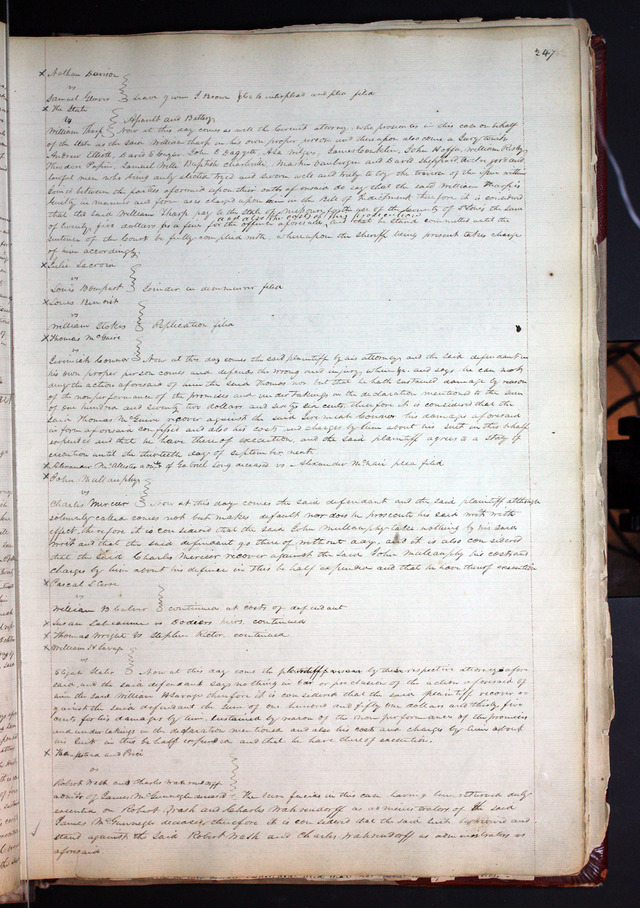 247
x Nathan Davison
vs
Samuel Groves Leave given to enterplead and plea filed
x The State
vs Assault and Battery
William Tharp Now at this day comes as well the Circuit attorney who prosecutes in this case on behalf
of the State as the said William Tharp in his own proper person and thereupon also comes a Jury towit
Andrew Elliott, David E Cuyler, John C Daggett, Asa Wilgus, James Conklin, John Hoffer, William
Theodore Papin, Samuel Wells, Baptiste and David Sheppard, twelve good and
lawful men who being duly elected tryed and sworn well and truly to try the traverse of the Issue within
Joined between the parties aforesaid upon their oaths aforesaid do say that the said William Tharp is
Guilty in manner and form as is charged upon him in the Bill of Indictment therefore it is considered
that the said William Tharp pay to the State of Missouri for the use of the County of St Louis the sum
and also the costs of this prosecution
of twenty five dollars as a fine for the offence aforesaid, and that he stand committed until the
sentence of the Court be fully complied with, whereupon the Sheriff being present takes charge
of him accordingly
x Julie
vs
Louis Bompart Joinder in demurrer filed
x Louis Benoist
vs
William Stokes Replication filed
x Thomas McGuire
vs
Connor Now at this day comes the said plaintiff by his attorney and the said defendant in
his own proper person comes and defends the wrong and injury, when &c and says he can not
deny the action aforesaid of him the said Thomas nor but that he hath sustained damage by reason
of the nonperformance of the promises and undertakings in the declaration mentioned to the sum
of one hundred and seventy two dollars and sixty six cents therefore it is considered that the
said Thomas McGuire recover against the said Connor his damages aforesaid
in form aforesaid confessed and also his costs and charges by him about his suit in this behalf
expended and that he have thereof execution, and the said plaintiff agrees to a stay of
execution until the thirteenth day of september next
x Alexander McAllister admr of Gabriel Long deceased vs Alexander McNair plea filed
x John Mullanphy
vs
Charles Mercier Now at this day comes the said defendant and the said plaintiff although
solemnly called comes not but makes default nor does he prosecute his said writ with
effect, therefore it is considered that the said John Mullanphy takes nothing by his said
writ and that the said defendant go thereof without day, and it is also considered
that the said Charles Mercier recover against the said John Mullanphy his costs and
charges by him about his defence in this behalf expended and that he have thereof execution
x Pascal L Cerre
vs
William B continued at costs of defendant
x Susan vs Dodiers heirs continued
x Thomas Wright vs Stephen Rector continued
x William H Savage
vs
Elijah Now at this day come the plaintiff by their respective attorneys afore
said and the said defendant says nothing in bar or preclusion of the action aforesaid of
him the said William H Savage therefore it is considered that the said plaintiff recover
against the said defendant the sum of one hundred and fifty one dollars and thirty five
cents for his damages by him sustained by reason of the non performance of the promises
and undertakings in the declaration mentioned and also his costs and charges by him about
his suit in this behalf expended and that he have thereof execution
x and Price
vs
Robert Wash and Charles Wahrendorff
admrs of James McGunnegle deceased The scire facias in this case having been returned duly
executed on Robert Wash and Charles Wahrendorff as administrators of the said
James McGunnegle deceased, therefore it is considered that the said Suit be revived and
stand against the said Robert Wash and Charles Wahrendorff as administrators as
aforesaid